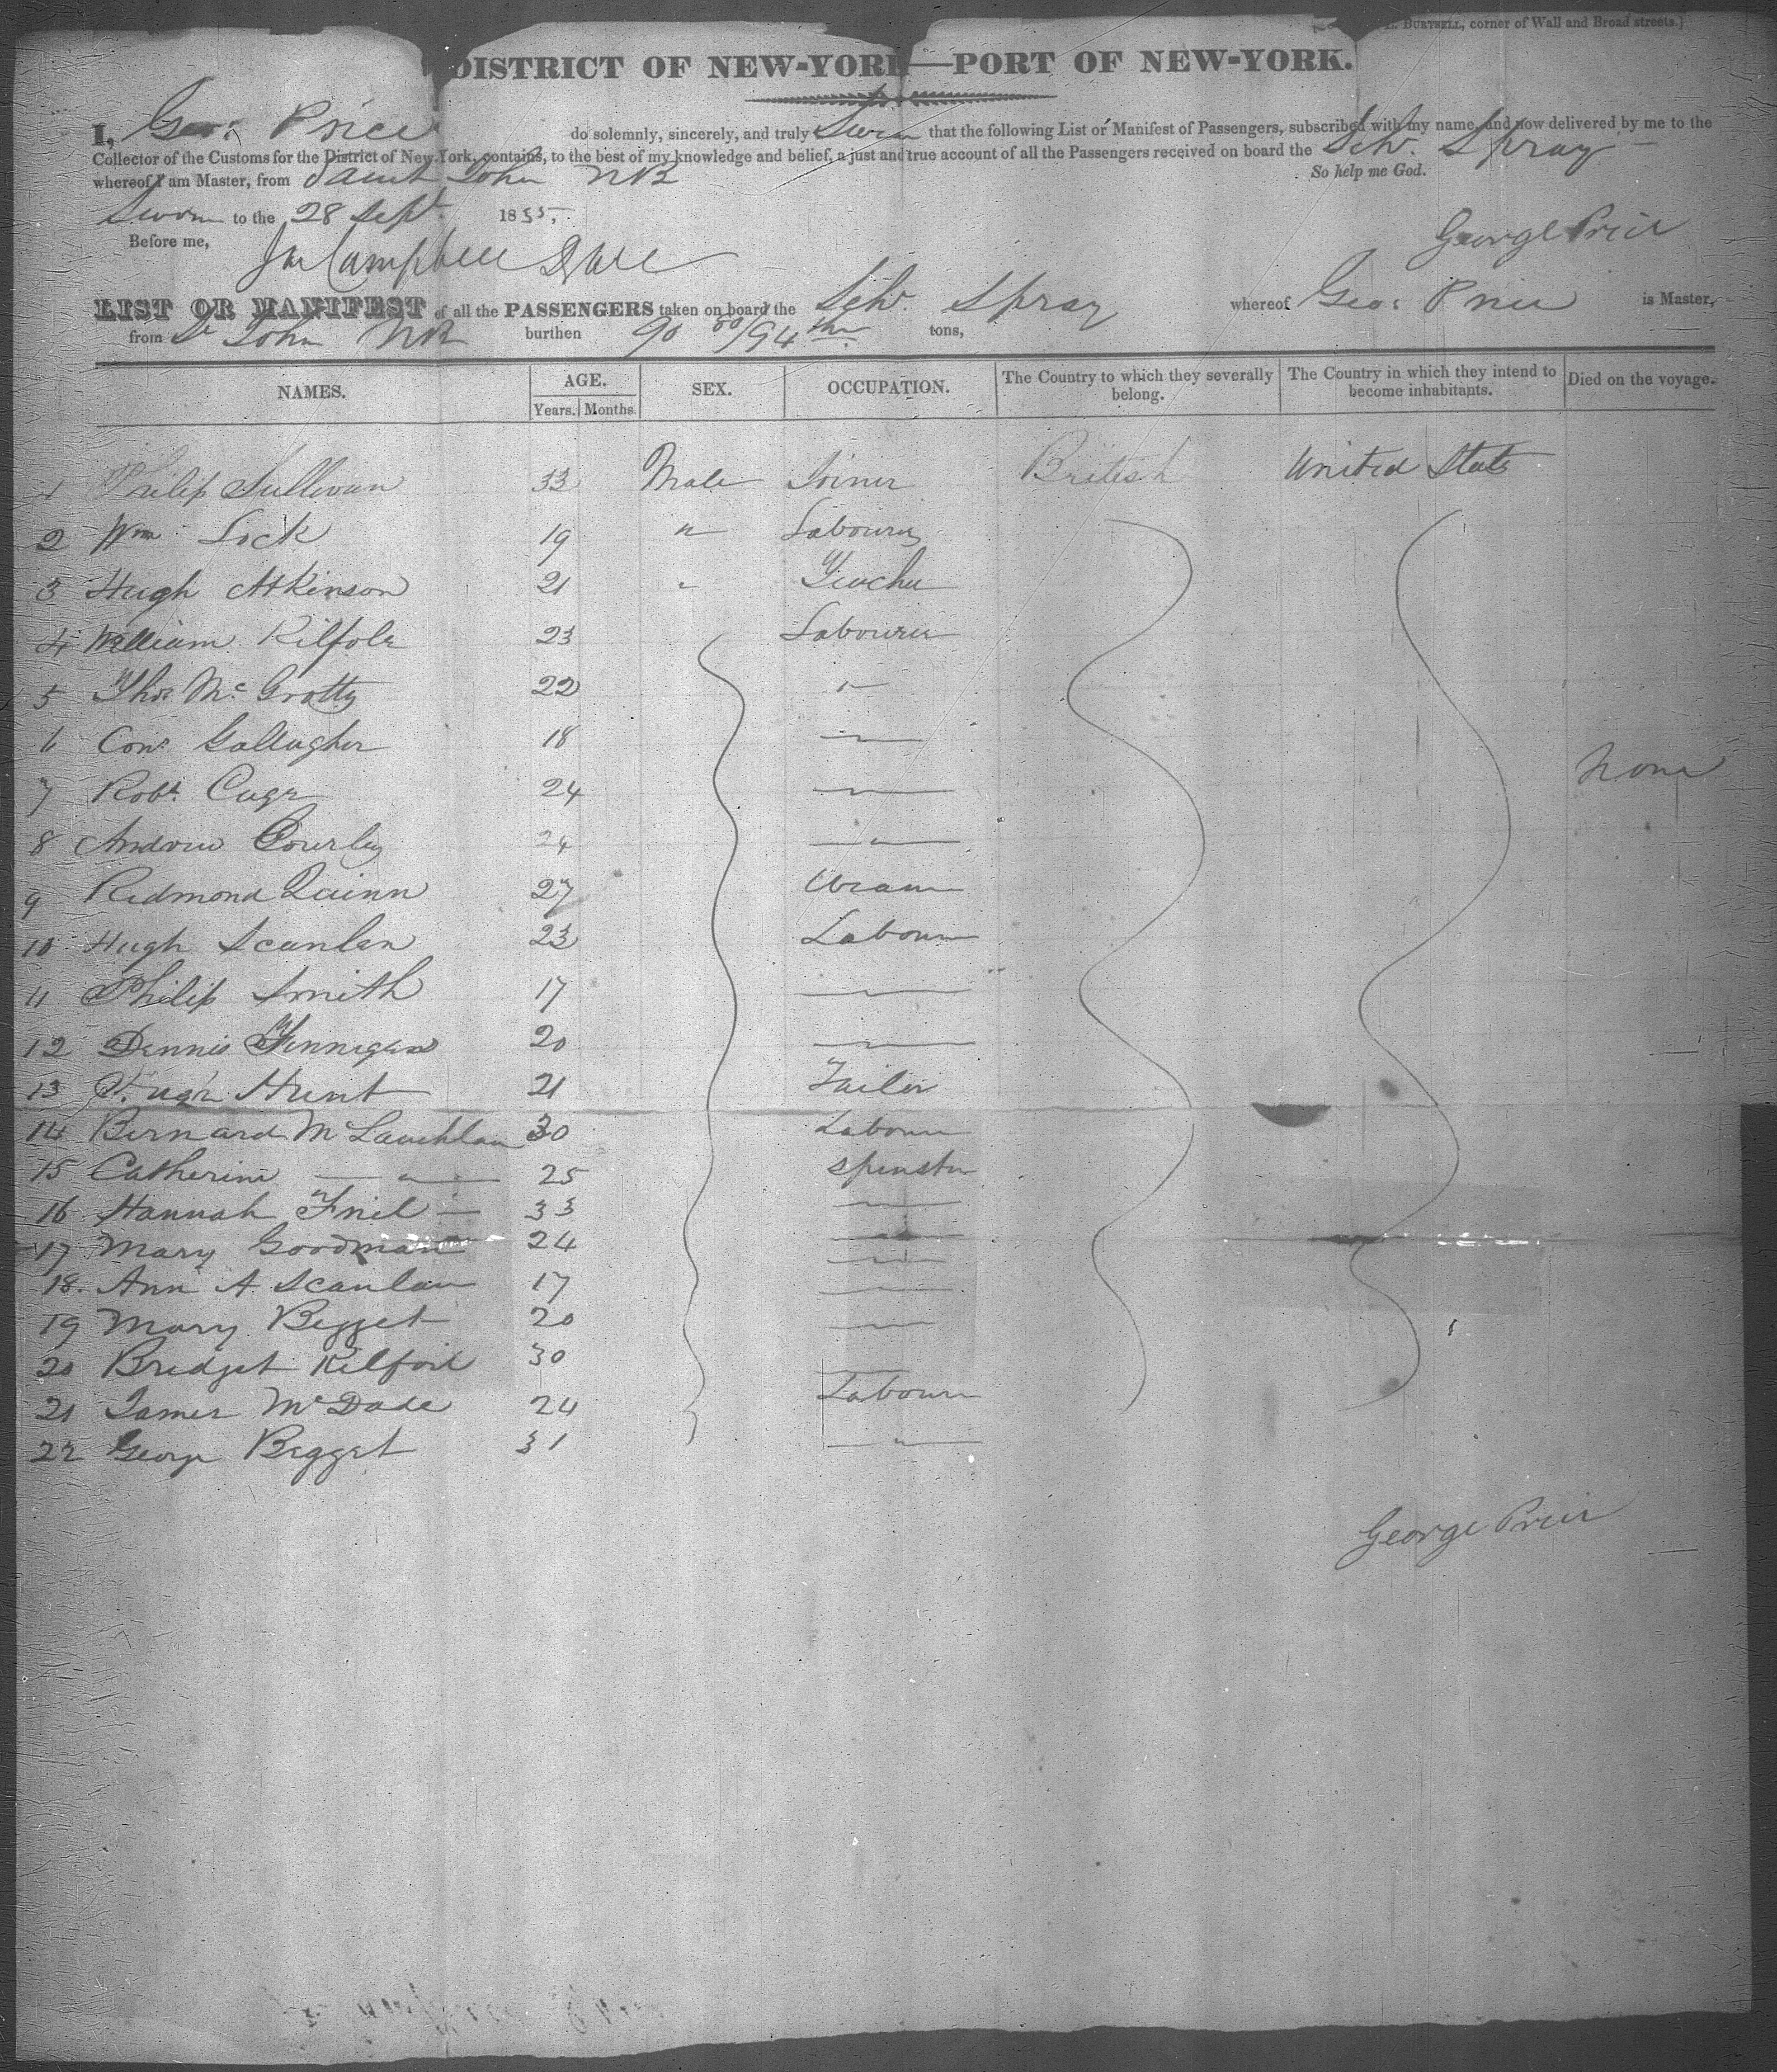 BURTSELL, corner of Wall and Broad streets.]
DISTRICT OF NEW-YORK—PORT OF NEW-YORK.
I, Geo: Price do solemnly, sincerely, and truly Swear that the following List or Manifest of Passengers, subscribed with my name, and now delivered by me to the
Collector of the Customs for the District of New-York, contains, to the best of my knowledge and belief, a just and true account of all the Passengers received on board the Schr. Spray
whereof I am Master, from Saint John NB So help me God.
Sworn to the 28 Sept. 1855,
Before me, George Price
Campbell
LIST OR MANIFEST of all the PASSENGERS taken on board the Schr. Spray whereof Geo: Price is Master,
from St John NB burthen 90 /94ths tons,
NAMES. AGE. Years. Months. SEX. OCCUPATION. The Country to which they severally belong. The Country in which they intend to become inhabitants. Died on the voyage.
1 Philip Sullivan 33 Male Joiner British United States
2 Wm Lock 19 " Labourer
3 Hugh Atkinson 21 " Teacher
4 William Kilfole 23 Labourer
5 Thos. Mc Gratty 22 "
6 Con. Gallagher 18 "
7 Robt. 24 " None
8 Andrew Gourley 24 "
9 Redmond Quinn 27
10 Hugh Scanlan 23 Labourer
11 Philip Smith 17 "
12 Dennis Finnegan 20 "
13 Hugh Hunt 21 Tailor
14 Bernard McLauchlan 30 Labourer
15 Catherine " 25 Spinster
16 Hannah Friel 33 "
17 Mary Goodman 24 "
18. Ann A Scanlan 17 "
19 Mary Begget 20 "
20 Bridget Kilfoil 30 "
21 James McDade 24 Labourer
22 George Begget 31 "
George Price